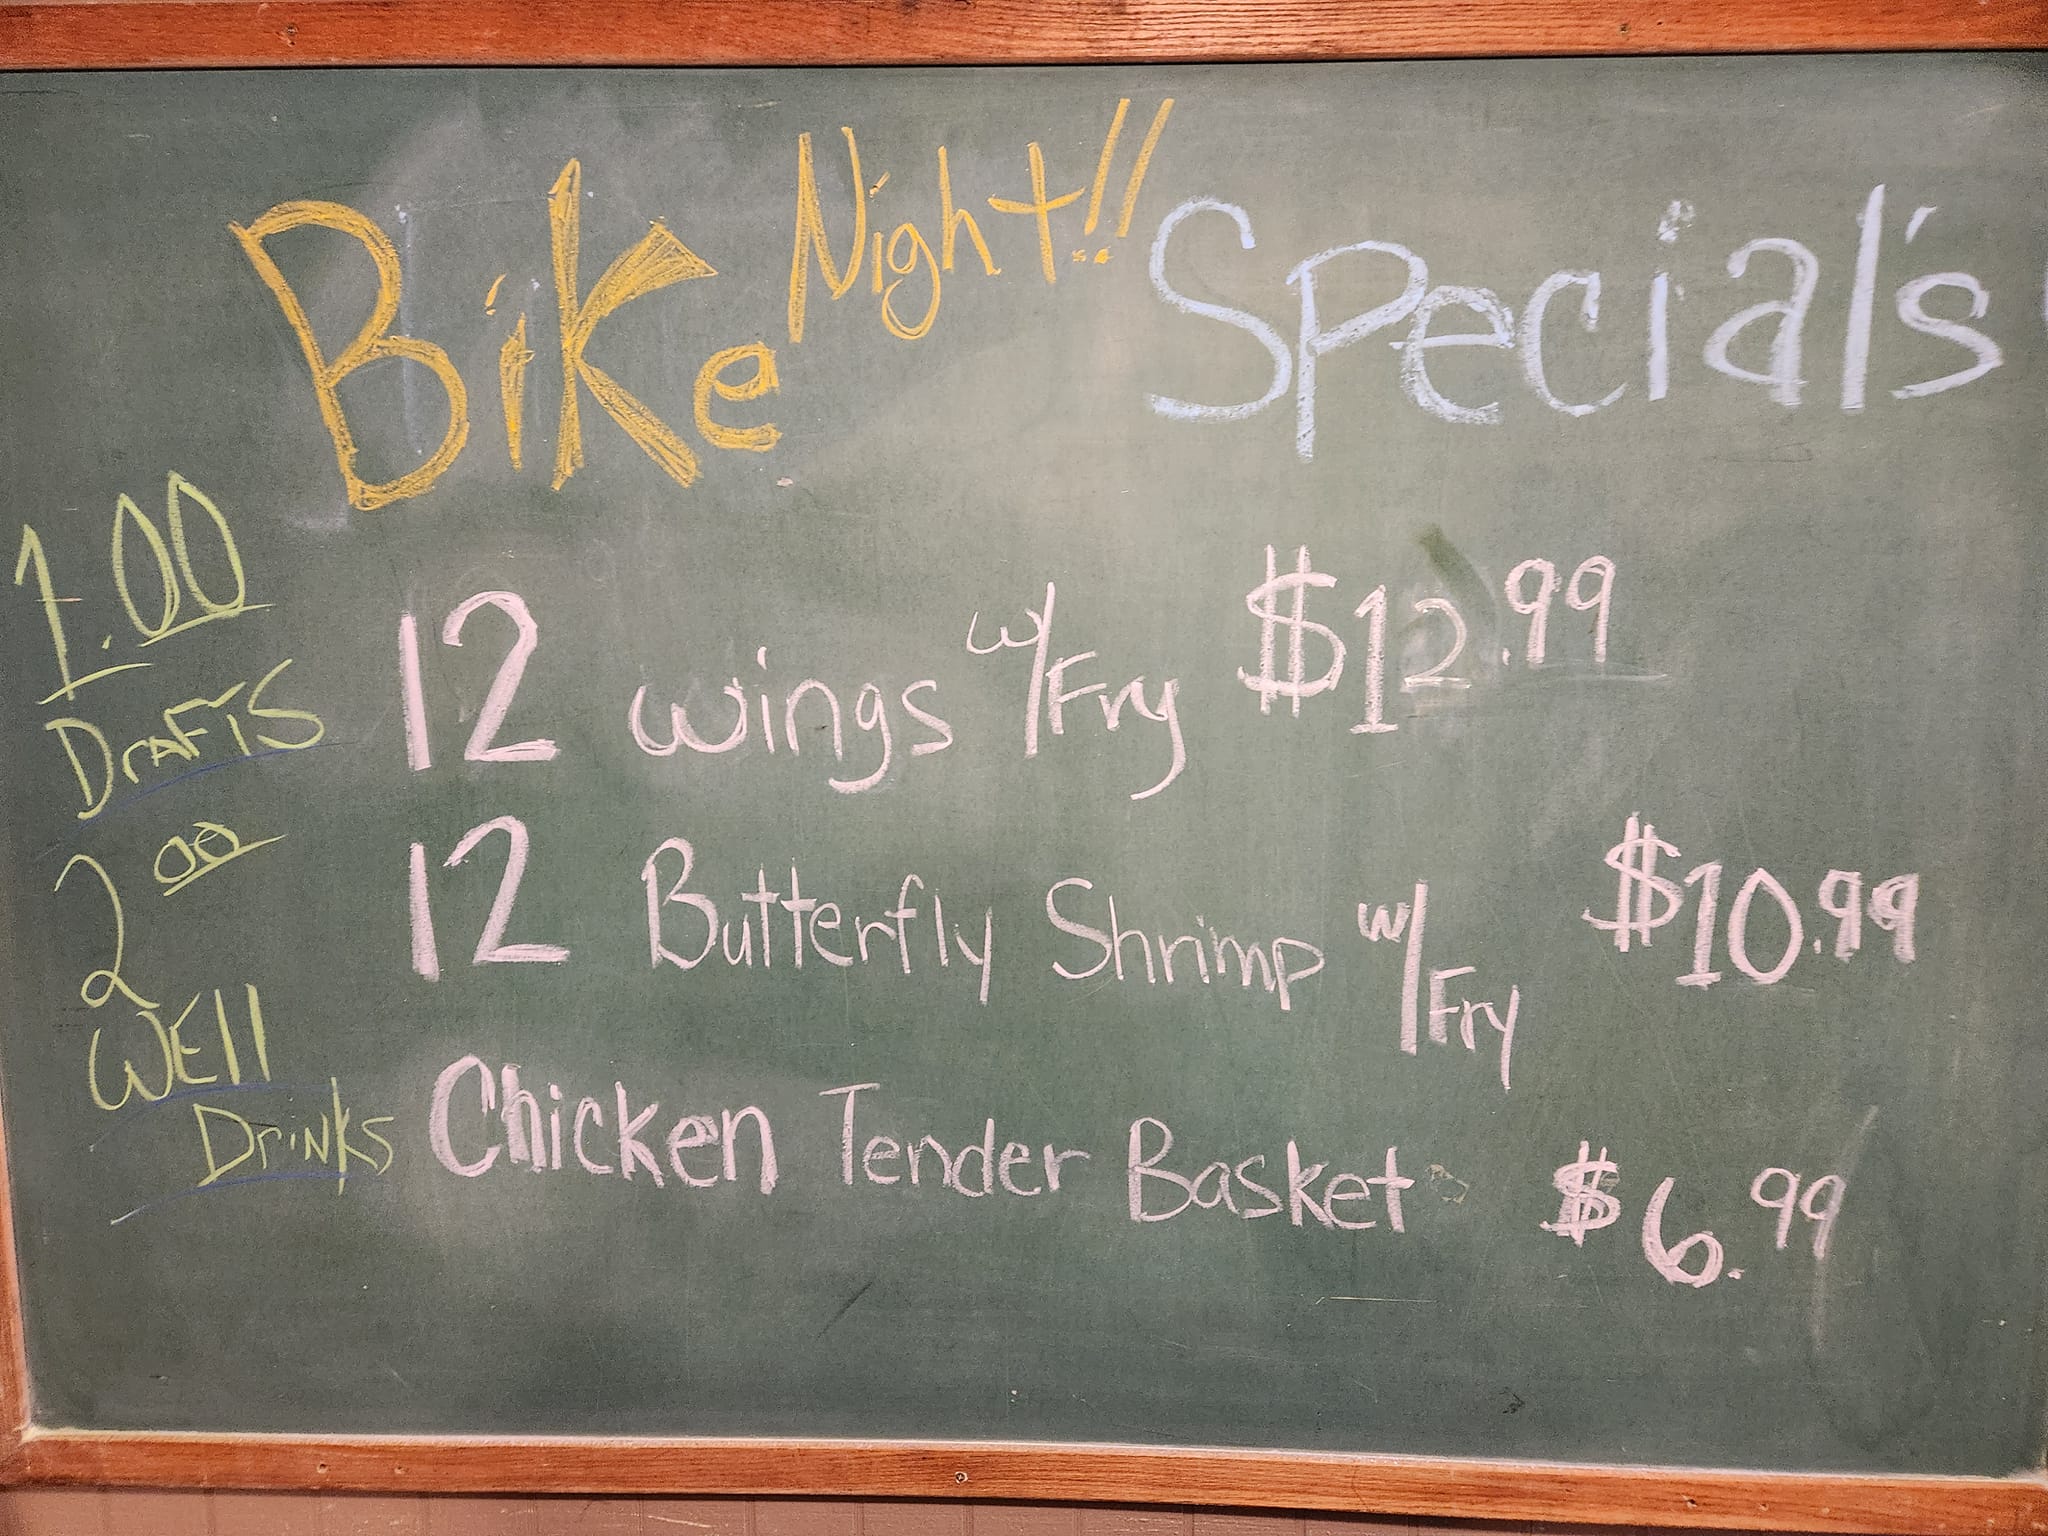 Bike Night!! Special's
1.00
Drafts
2.00
Well
Drinks
12 wings w/Fry $12.99
12 Butterfly Shrimp w/Fry $10.99
Chicken Tender Basket $6.99